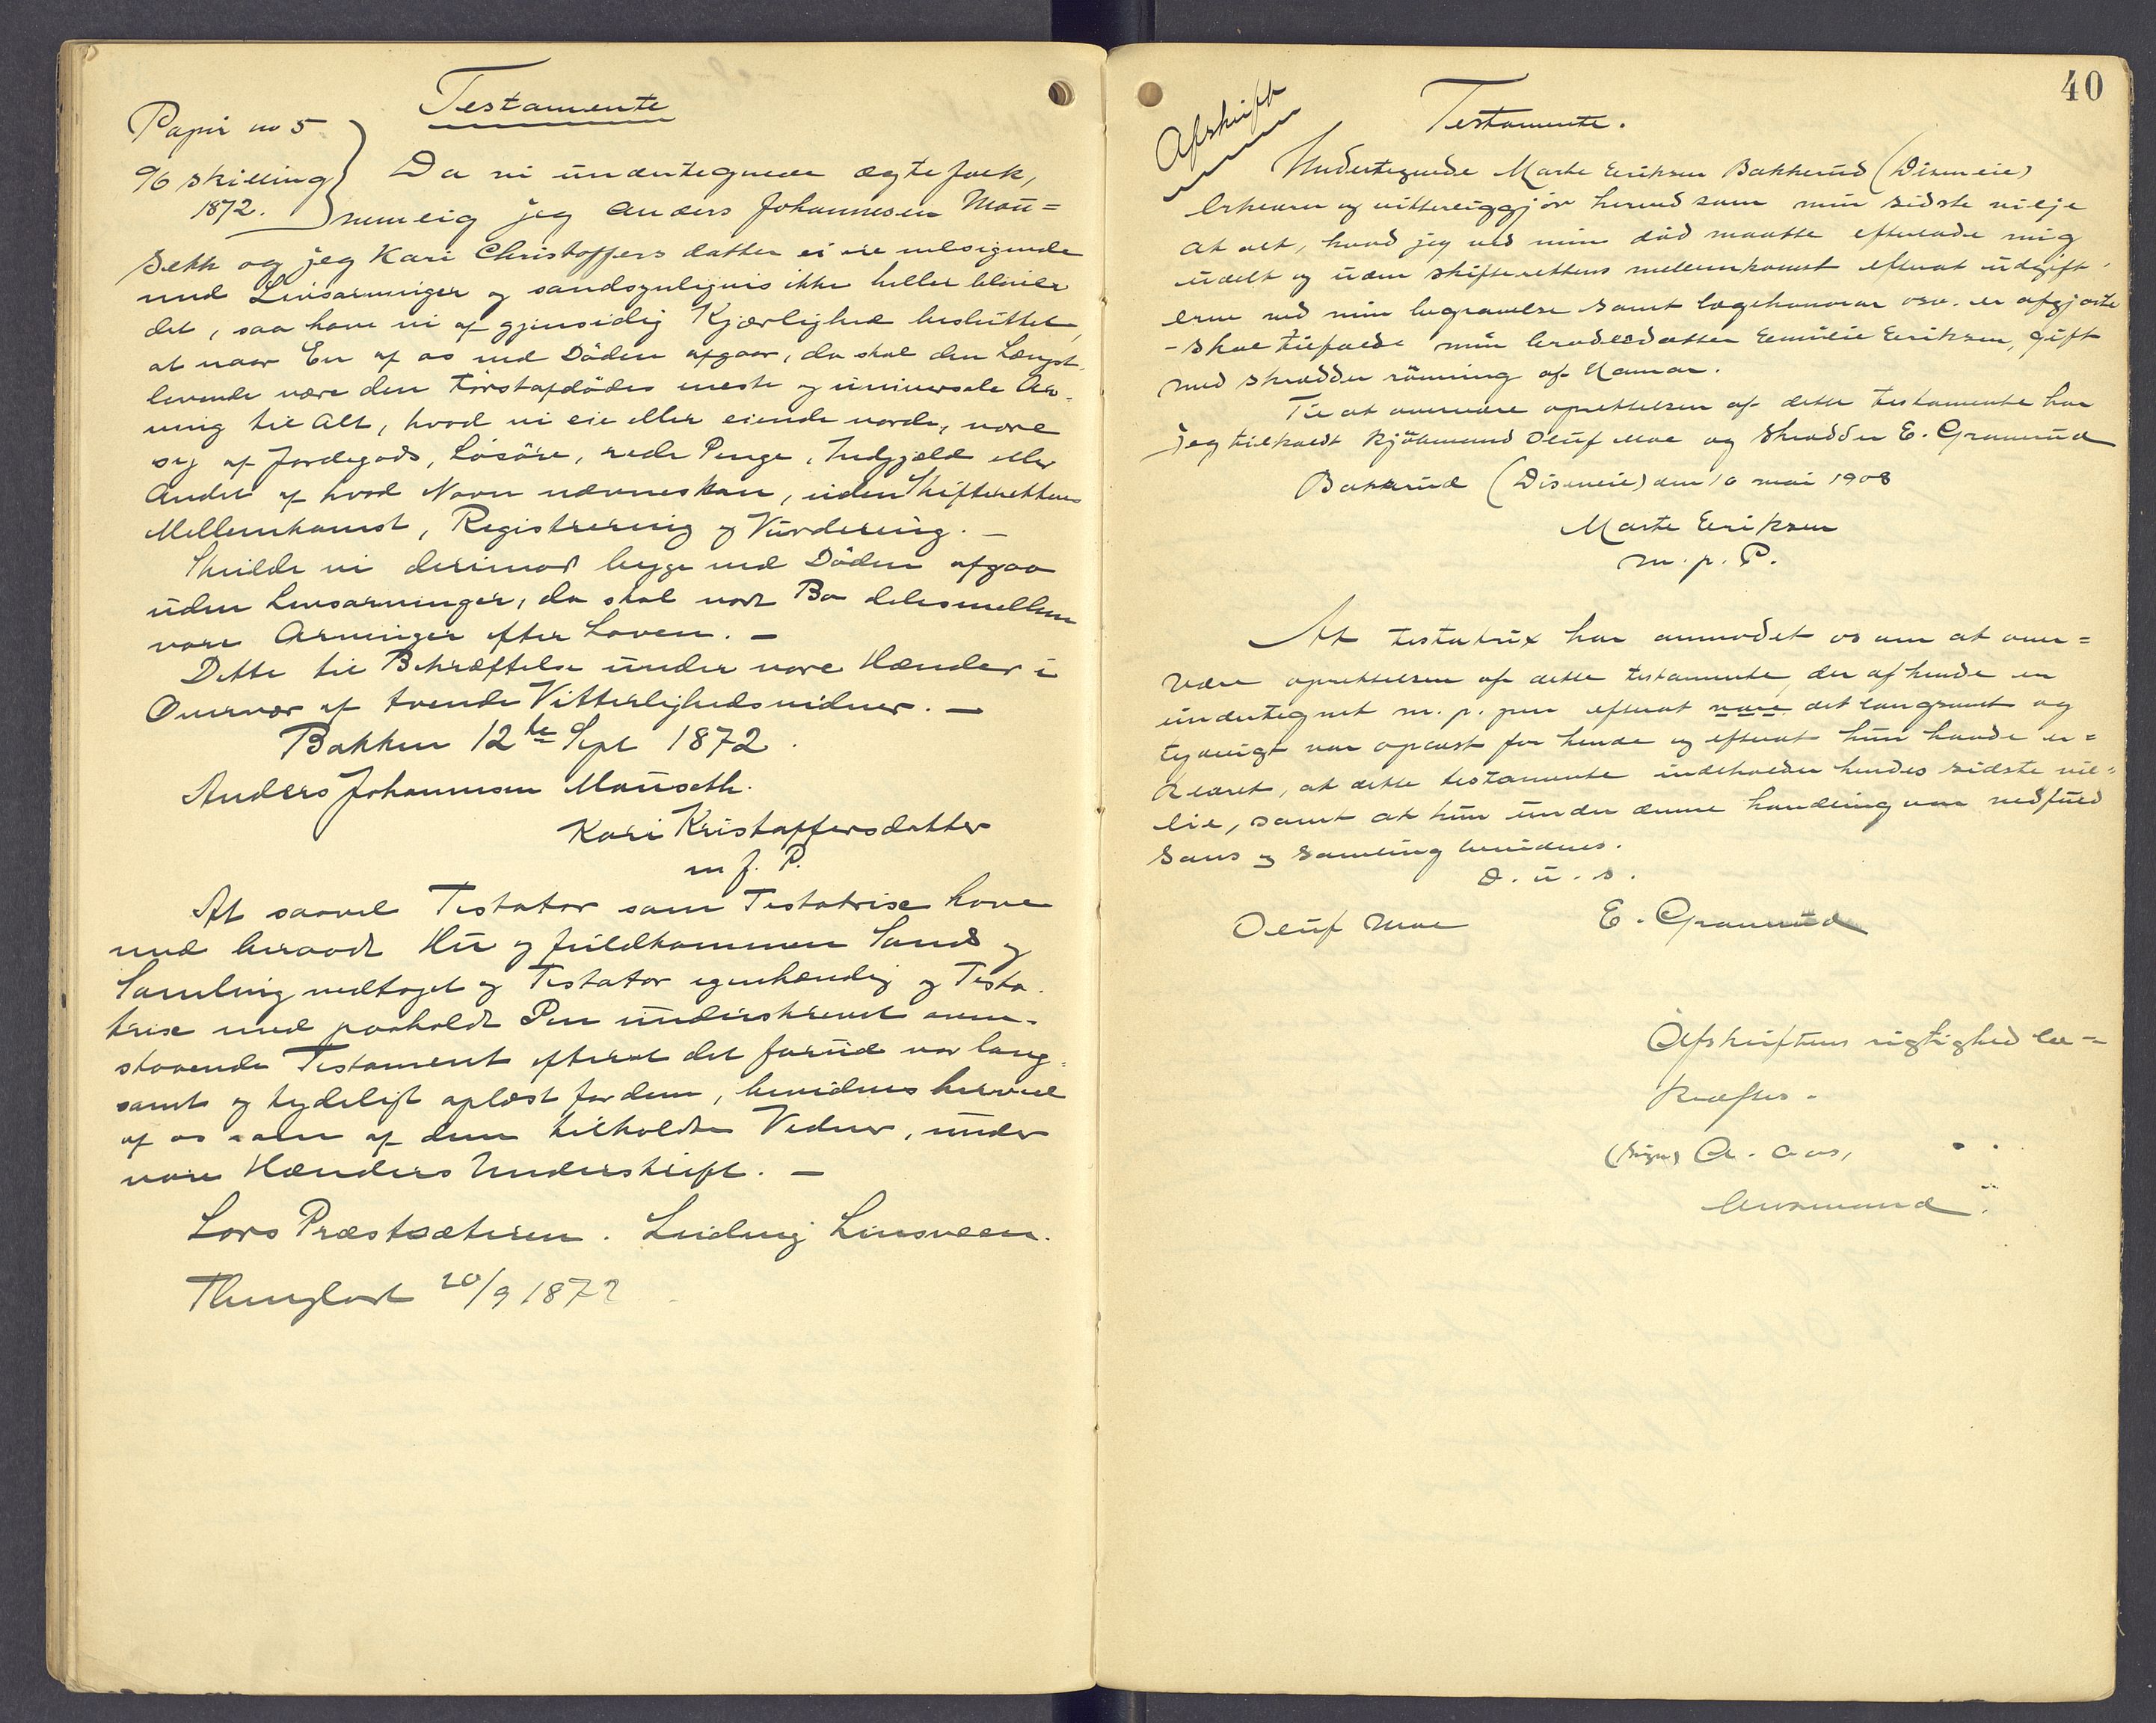 Testamente
Papir no 5
96 skilling
1872.
Da vi undertegnede ægtefolk,
nemlig jeg Anders Johannesen Mau=
sett og jeg Kari Christoffersdatter ei ere velsignede
med Livsarvinger og sandsynligvis ikke heller bliver
det, saa have vi af gjensidig Kjærlighed besluttet,
at naar En af os ved Döden afgaar, da skal den Længst-
levende være den Förstafdödes eneste og universale Ar-
ving til Alt, hvad vi eie eller eiende vorde, være
sig af Jordegods, Lösöre, rede Penge, Indgjæld eller
Andet af hvad Navn nævnes kan, uden Skifterettens
Mellemkomst, Registrering og Vurdering. —
Skulde vi derimod begge ved Döden afgaa
uden Livsarvinger, da skal vort Bo deles mellem
vore Arvinger efter Loven. —
Dette til Bekræftelse under vore Hænder i
Overvær af tvende Vitterlighedsvidner. —
Bakken 12te Sept 1872.
Anders Johannesen Mauseth.
Kari Kristoffersdatter
m f. P.
At saavel Testator som Testatrise have
med beraad Hu og fuldkommen Sands og
Samling vedtaget og Testator egenhændig og Testa-
trise med paaholdt Pen underskrevet oven-
staaende Testament efterat det forud var lang-
samt og tydeligt oplæst for dem, bevidnes herved
af os som af dem tilkaldte Vidner, under
vore Hænders Underskrift. —
Lars Præstsæteren. Ludvig Linsveen.
Thinglæst 20/9 1872
40
Afskrift
Testamente.
Undertegnede Marte Eriksen Bakkerud (Diseneie)
erklærer og vitterliggjör herved som min sidste vilje
at alt, hvad jeg ved min död maatte efterlade mig
udelt og uden skifterettens mellemkomst efterat udgift-
erne ved min begravelse samt lægehonorar osv. er afgjorte
- skal tilfalde min brodersdatter Emilie Eriksen, gift
med skrædder Rönning af Hamar.
Til at overvære oprettelsen af dette testamente har
jeg tilkaldt kjöbmand Oluf Moe og skrædder E. Granerud
Bakkerud (Diseneie) den 10 mai 1908
Marte Eriksen
m. p. P.
At testatrix har anmodet os om at over=
være oprettelsen af dette testamente, der af hende er
undertegnet m. p. pen efterat vare det langsomt og
tydeligt var oplæst for hende og efterat hun havde er=
klæret, at dette testamente indeholder hendes sidste vil=
lie, samt at hun under denne handling var ved fuld
sans og samling bevidnes.
D. u. s.
Oluf Moe E. Granerud
Afskriftens rigtighed be=
kræftes.
(sign) A. Aas,
lensmand.